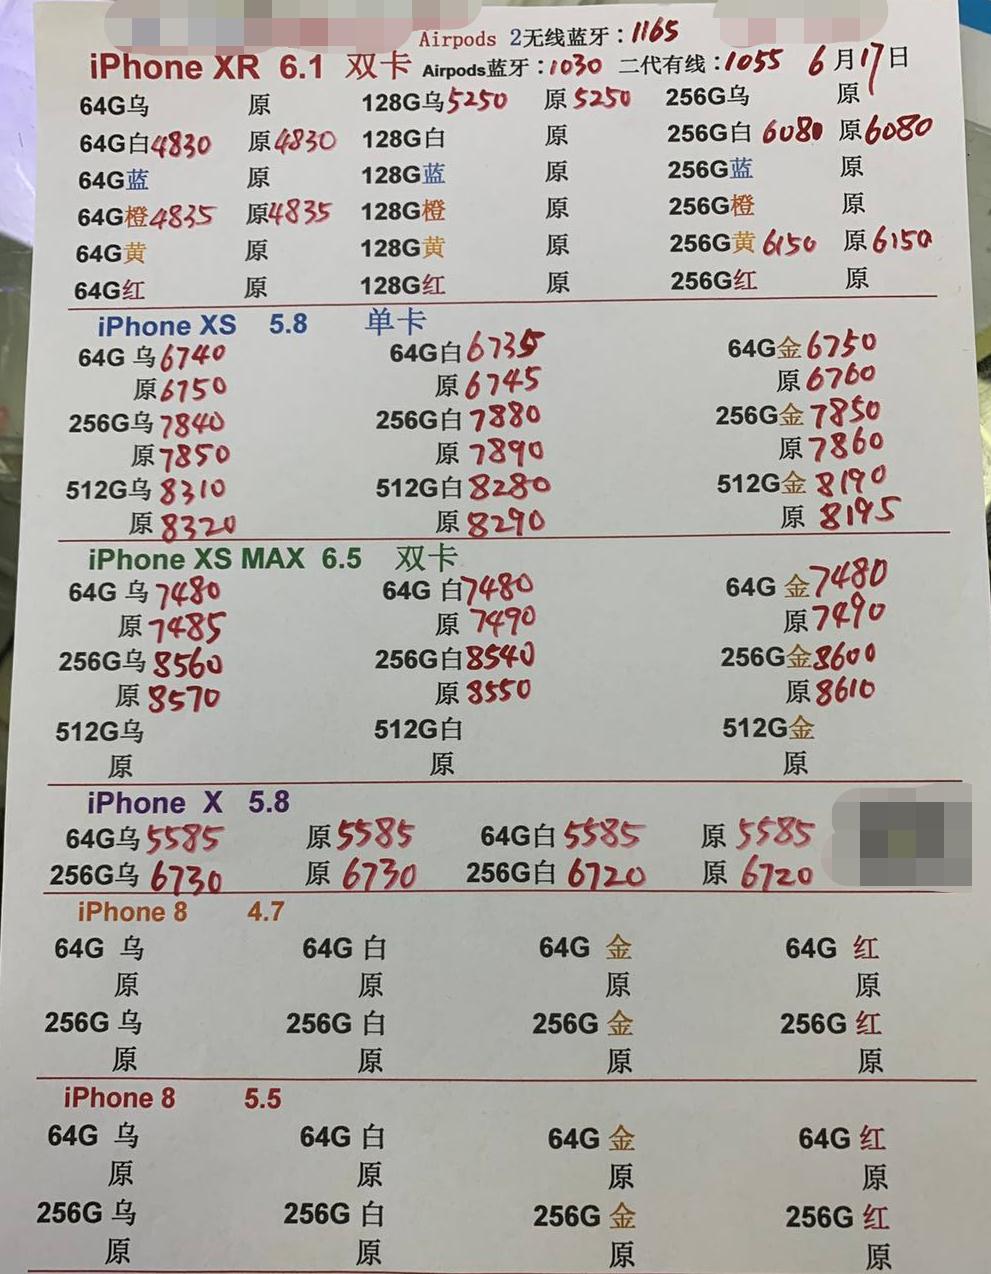 Airpods 2无线蓝牙:1165
iPhone XR 6.1 双卡 Airpods蓝牙:1030 二代有线:1055 6月17日
64G乌 原 128G乌5250 原5250 256G乌 原
64G白4830 原4830 128G白 原 256G白6080 原6080
64G蓝 原 128G蓝 原 256G蓝 原
64G橙4835 原4835 128G橙 原 256G橙 原
64G黄 原 128G黄 原 256G黄6150 原6150
64G红 原 128G红 原 256G红 原
iPhone XS 5.8 单卡
64G 乌6740 64G白6735 64G金6750
原6750 原6745 原6760
256G乌7840 256G白7880 256G金7850
原7850 原7890 原7860
512G乌8310 512G白8280 512G金8190
原8320 原8290 原8195
iPhone XS MAX 6.5 双卡
64G 乌7480 64G 白7480 64G 金7480
原7485 原7490 原7490
256G乌8560 256G白8540 256G金8600
原8570 原8550 原8610
512G乌 512G白 512G金
原 原 原
iPhone X 5.8
64G乌5585 原5585 64G白5585 原5585
256G乌6730 原6730 256G白6720 原6720
iPhone 8 4.7
64G 乌 64G 白 64G 金 64G 红
原 原 原 原
256G 乌 256G 白 256G 金 256G 红
原 原 原 原
iPhone 8 5.5
64G 乌 64G 白 64G 金 64G 红
原 原 原 原
256G 乌 256G 白 256G 金 256G 红
原 原 原 原